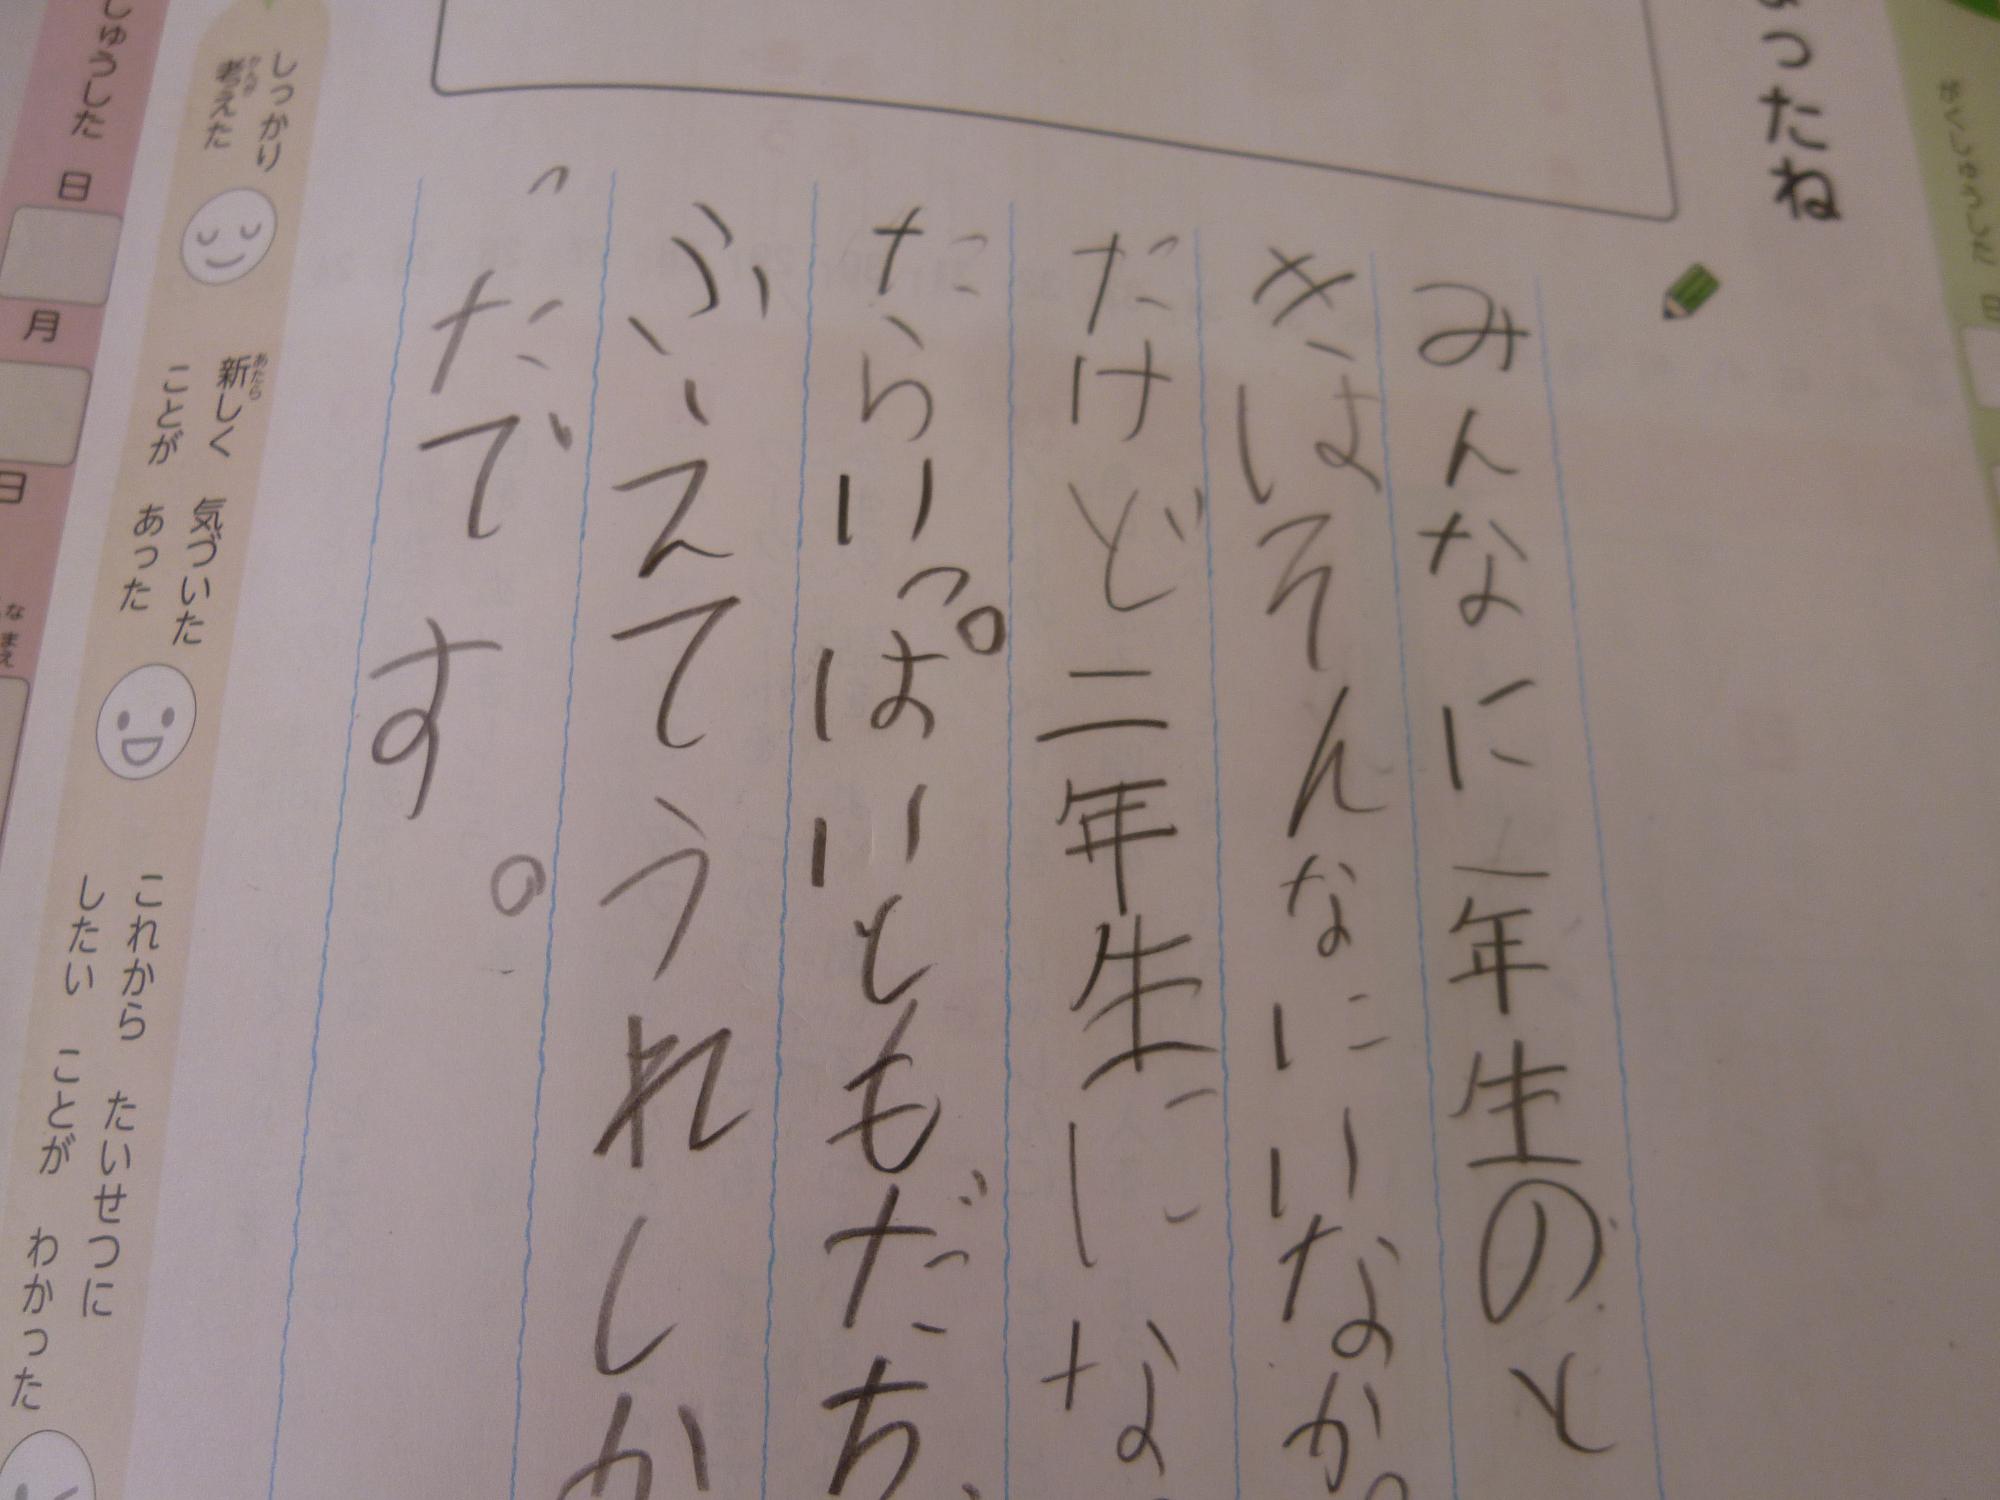 ったね
みんなに一年生のと
きはそんなにいなかっ
だけど二年生にな
たらいっぱいともだち
ふえてうれしか
っだです。
しっかり
考えた
かんが
新しく 気づいた
あたら
ことが あった
これから たいせつに
したい ことが わかった
しゅうした 日
月
日
なまえ
がくしゅうした 日